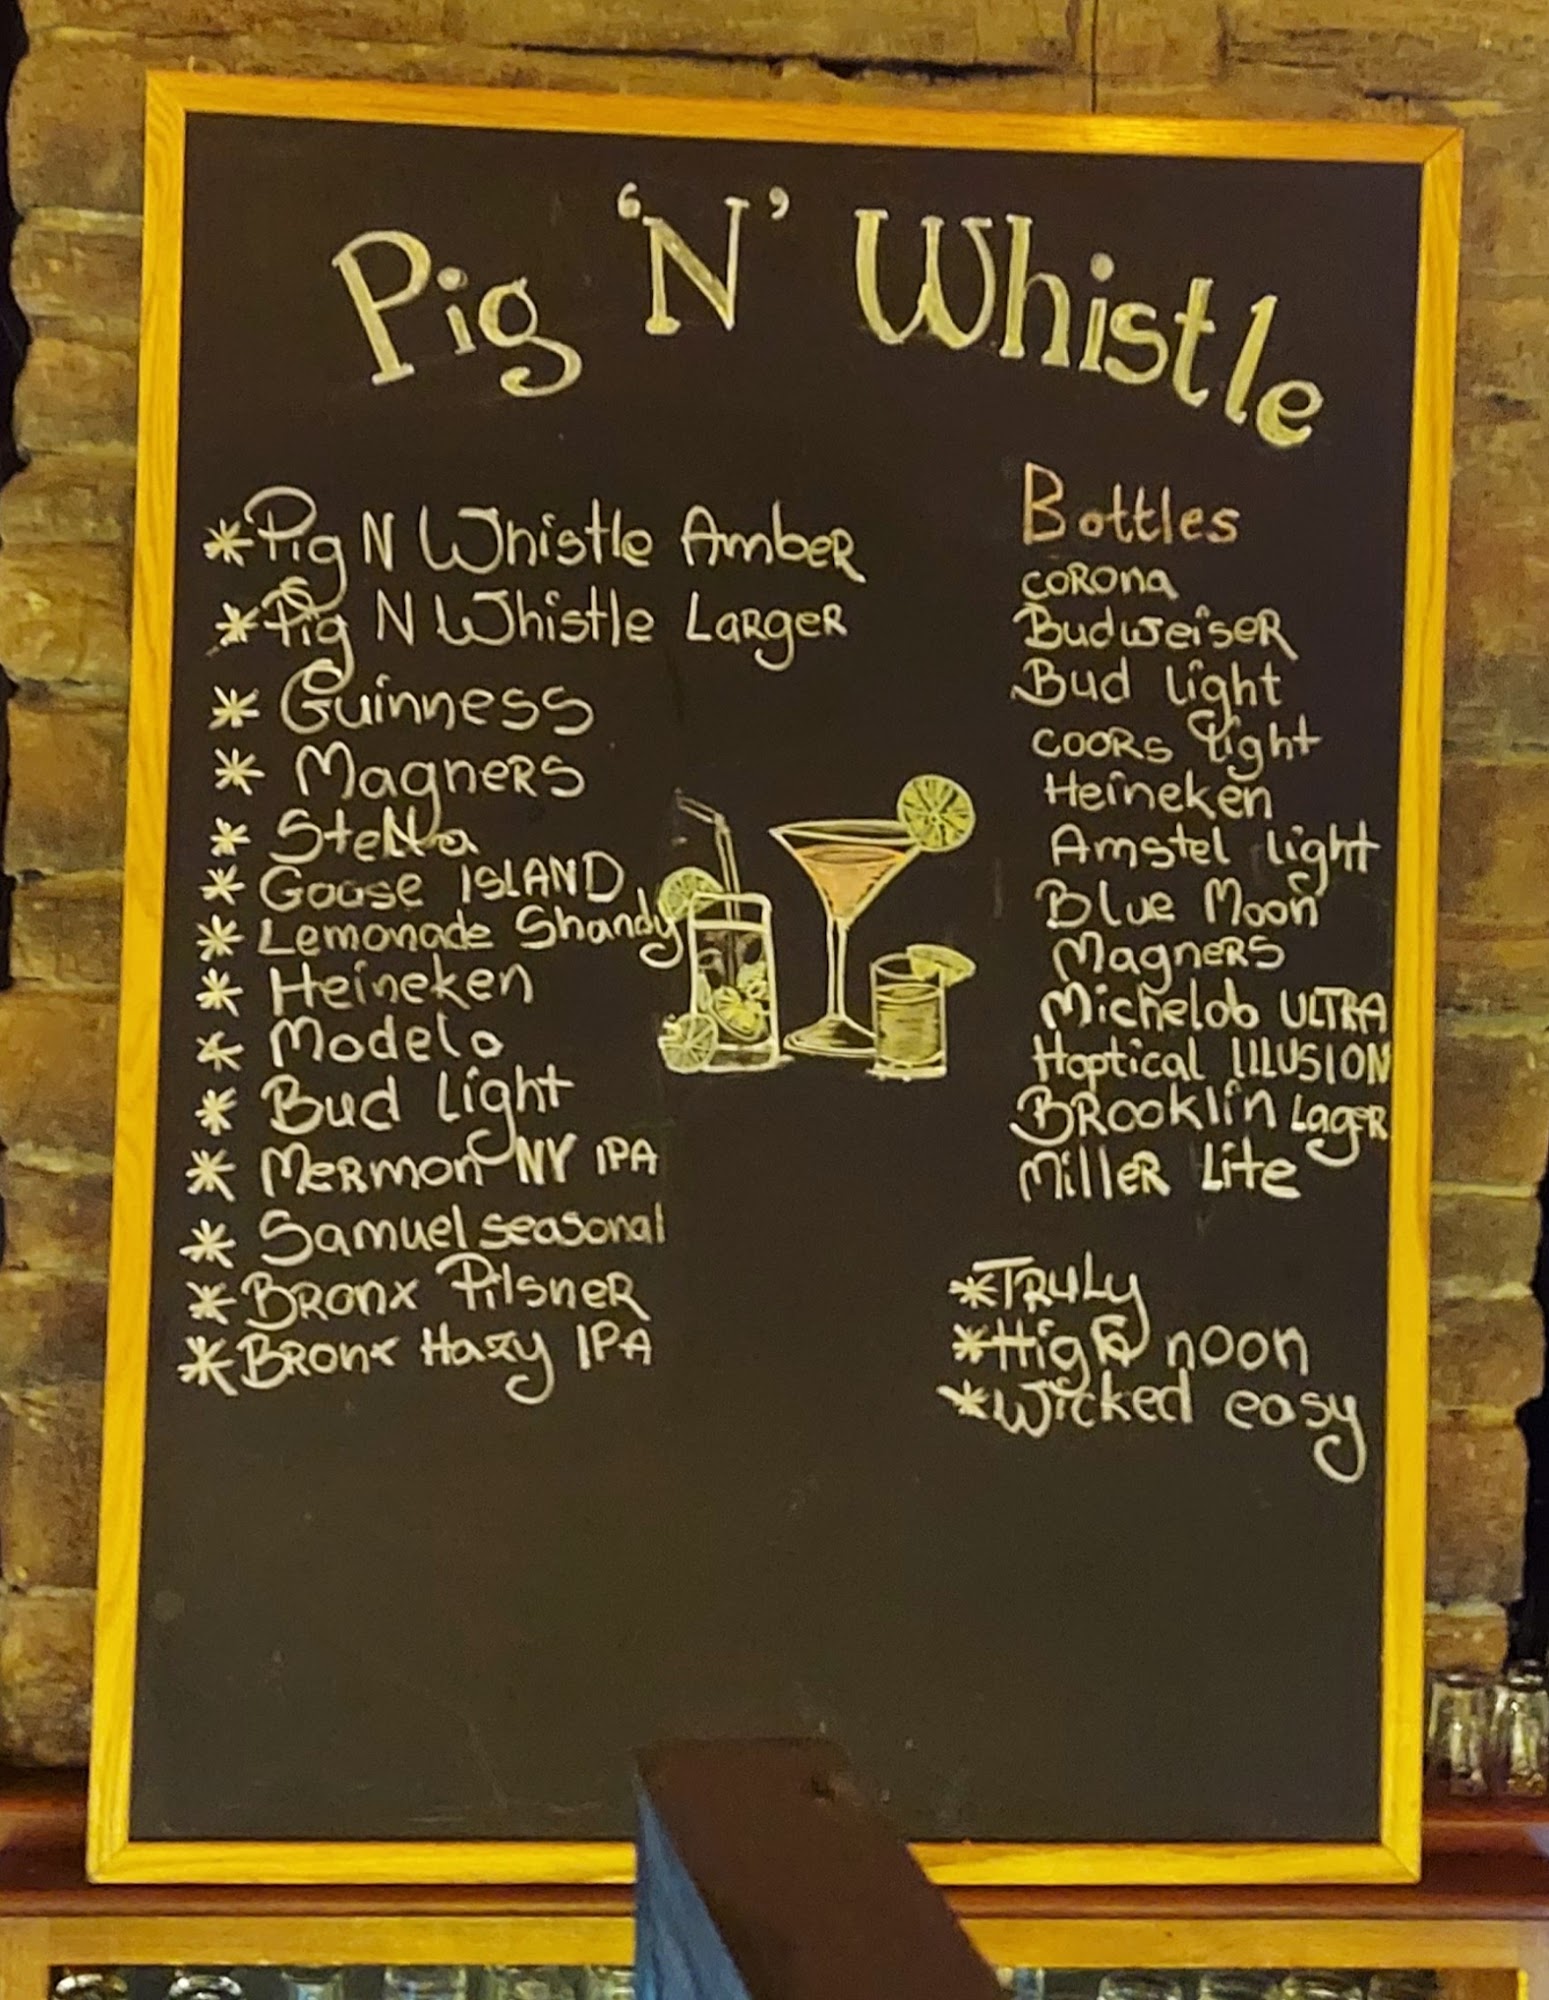 Pig 'N' Whistle
*Pig N Whistle Amber
*Pig N Whistle Larger
* Guinness
* Magners
* Stella
* Goose ISLAND
* Lemonade Shandy
* Heineken
* Modelo
* Bud Light
* Mermon NY IPA
* Samuel seasonal
* Bronx Pilsner
* Bronx Hazy IPA
Bottles
corona
Budweiser
Bud light
coors light
Heineken
Amstel light
Blue Moon
Magners
Michelob ULTRA
Hoptical ILLUSION
Brooklin Lager
Miller Lite
*Truly
*High noon
*Wicked easy